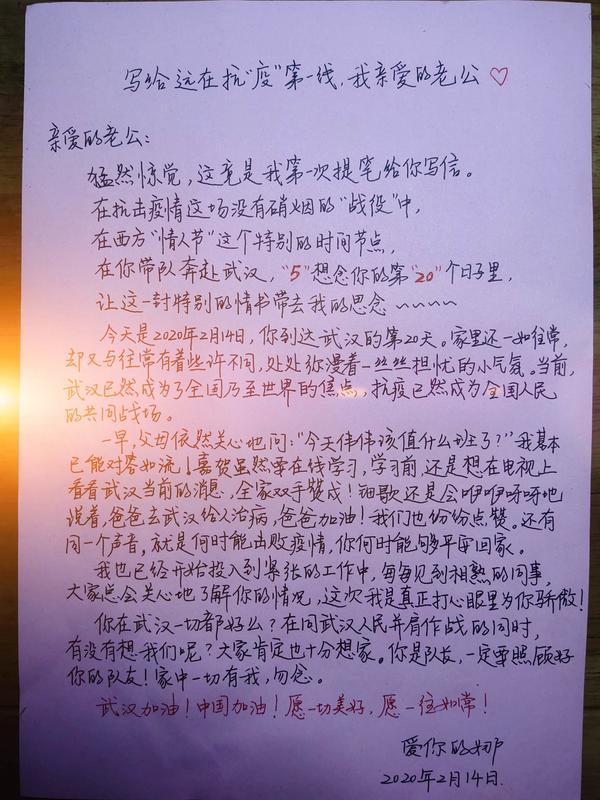 写给远在抗"疫"第一线，我亲爱的老公♡
亲爱的老公：
猛然惊觉，这竟是我第一次提笔给你写信。
在抗击疫情这场没有硝烟的"战役"中，
在西方"情人节"这个特别的时间节点，
在你带队奔赴武汉，"5"想念你的第"20"个日子里，
让这一封特别的情书带去我的思念~~~~
今天是2020年2月14日，你到达武汉的第20天。家里还一如往常，
却又与往常有着些许不同，处处弥漫着一丝丝担忧的小气氛。当前，
武汉已然成为了全国乃至世界的焦点，抗疫已然成为全国人民
的共同战场。
一早，父母依然关心地问："今天伟伟该值什么班了？"我基本
已能对答如流！嘉贺虽然要在线学习，学习前，还是想在电视上
看看武汉当前的消息，全家双手赞成！细歌还是会咿咿呀呀地
说着，爸爸去武汉给人治病，爸爸加油！我们也纷纷点赞。还有
同一个声音，就是何时能击败疫情，你何时能够平安回家。
我也已经开始投入到紧张的工作中，每每见到相熟的同事，
大家总会关心地了解你的情况，这次我是真正打心眼里为你骄傲！
你在武汉一切都好么？在同武汉人民并肩作战的同时，
有没有想我们呢？大家肯定也十分想家。你是队长，一定要照顾好
你的队友！家中一切有我，勿念。
武汉加油！中国加油！愿一切美好，愿一往如常！
爱你的娜
2020年2月14日.